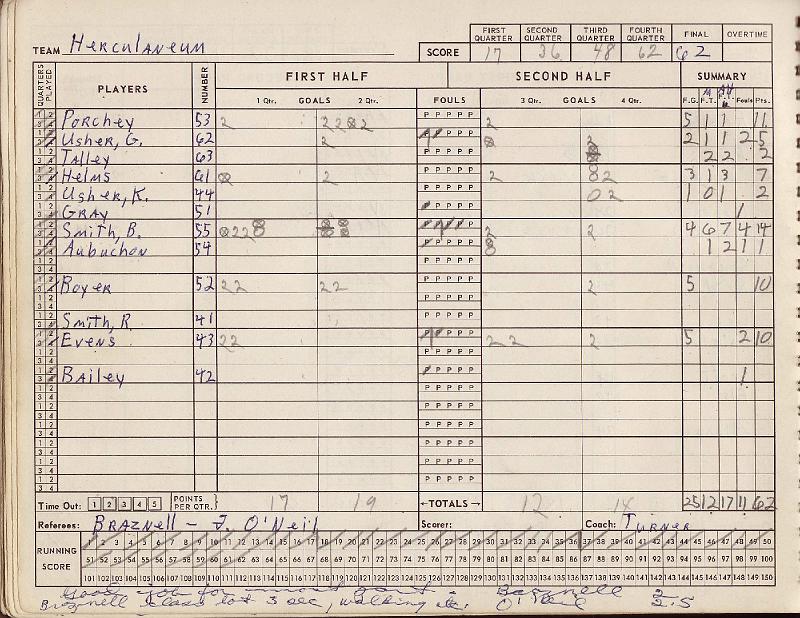 FIRST QUARTER SECOND QUARTER THIRD QUARTER FOURTH QUARTER FINAL OVERTIME
TEAM Herculaneum SCORE 17 36 48 62 62
QUARTERS PLAYED PLAYERS NUMBER FIRST HALF SECOND HALF SUMMARY
1 Qtr. GOALS 2 Qtr. FOULS 3 Qtr. GOALS 4 Qtr. F.G. F.T. Fouls Pts.
Porchey 53 2 2 2 2 2 P P P P P 2 5 1 1 11
Usher, G. 62 2 2 2 1 1 2 5
Talley 63 P P P P P 2 2 2
Helms 61 2 2 2 3 1 3 7
Usher, K. 44 P P P P P 0 2 1 0 1 2
Gray 51 1
Smith, B. 55 2 2 2 2 4 6 7 4 14
Aubuchon 54 1 2 1 1
Boyer 52 2 2 2 2 P P P P P 2 5 10
Smith, R. 41 P P P P P
Evens 43 2 2 2 2 2 5 2 10
Bailey 42 P P P P 1
P P P P P
P P P P P
P P P P P
P P P P P
P P P P P
P P P P P
Time Out: 1 2 3 4 5 POINTS PER QTR. 17 19 ←TOTALS→ 12 14 25 12 17 11 62
Referees: Braznell - J. O'Neil Scorer: Coach: Turner
1 2 3 4 5 6 7 8 9 10 11 12 13 14 15 16 17 18 19 20 21 22 23 24 25 26 27 28 29 30 31 32 33 34 35 36 37 38 39 40 41 42 43 44 45 46 47 48 49 50
RUNNING SCORE 51 52 53 54 55 56 57 58 59 60 61 62 63 64 65 66 67 68 69 70 71 72 73 74 75 76 77 78 79 80 81 82 83 84 85 86 87 88 89 90 91 92 93 94 95 96 97 98 99 100
101 102 103 104 105 106 107 108 109 110 111 112 113 114 115 116 117 118 119 120 121 122 123 124 125 126 127 128 129 130 131 132 133 134 135 136 137 138 139 140 141 142 143 144 145 146 147 148 149 150
Good job for most part - Braznell 2
Braznell 3 sec, walking etc. O'Neil 2.5